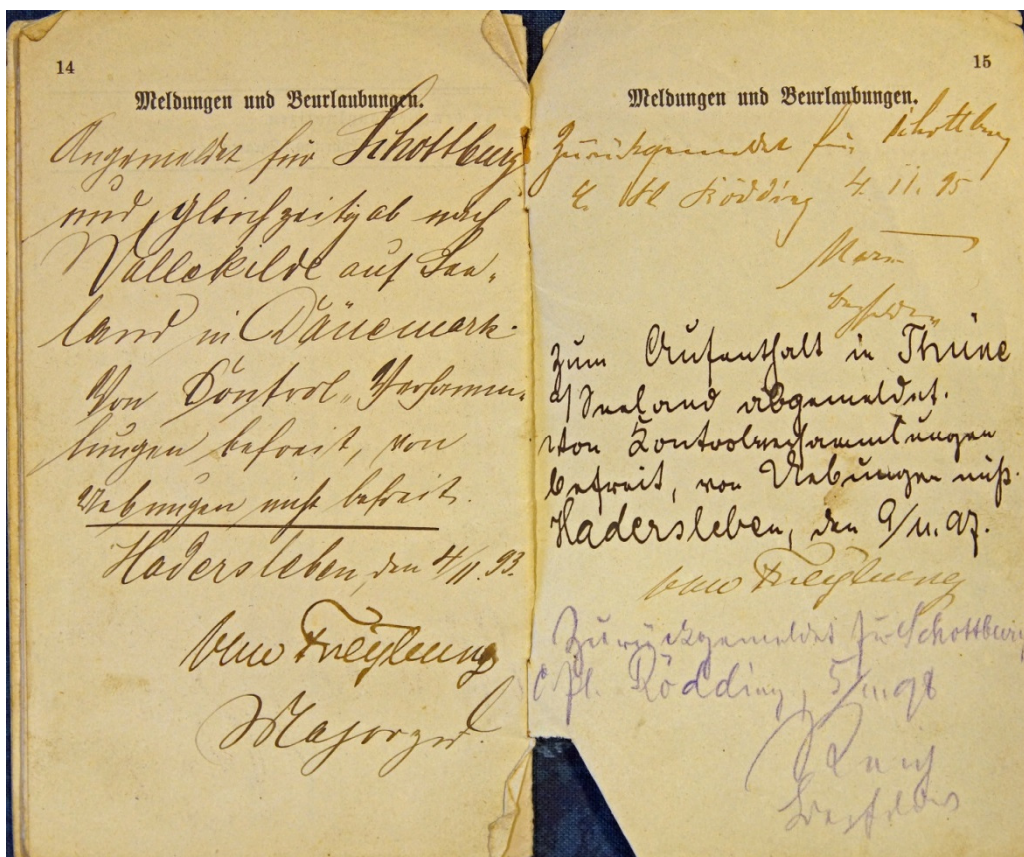 14
Meldungen und Beurlaubungen.
Angemeldet für Schottburg
und gleichzeitig ab nach
Vallekilde auf See-
land in Dänemark.
Von Control-Versamm-
lungen befreit, von
Uebungen nicht befreit.
Hadersleben, den 4/11. 93.
Major
15
Meldungen und Beurlaubungen.
Zurückgemeldet für Schottburg
Rödding 4. 11. 95
Zum Aufenthalt in Thune
a/Seeland abgemeldet.
Von Kontrolversammlungen
befreit, von Uebungen nicht.
Hadersleben, den 9/11. 97.
Zurückgemeldet für Schottburg
Rödding, 5/11. 98